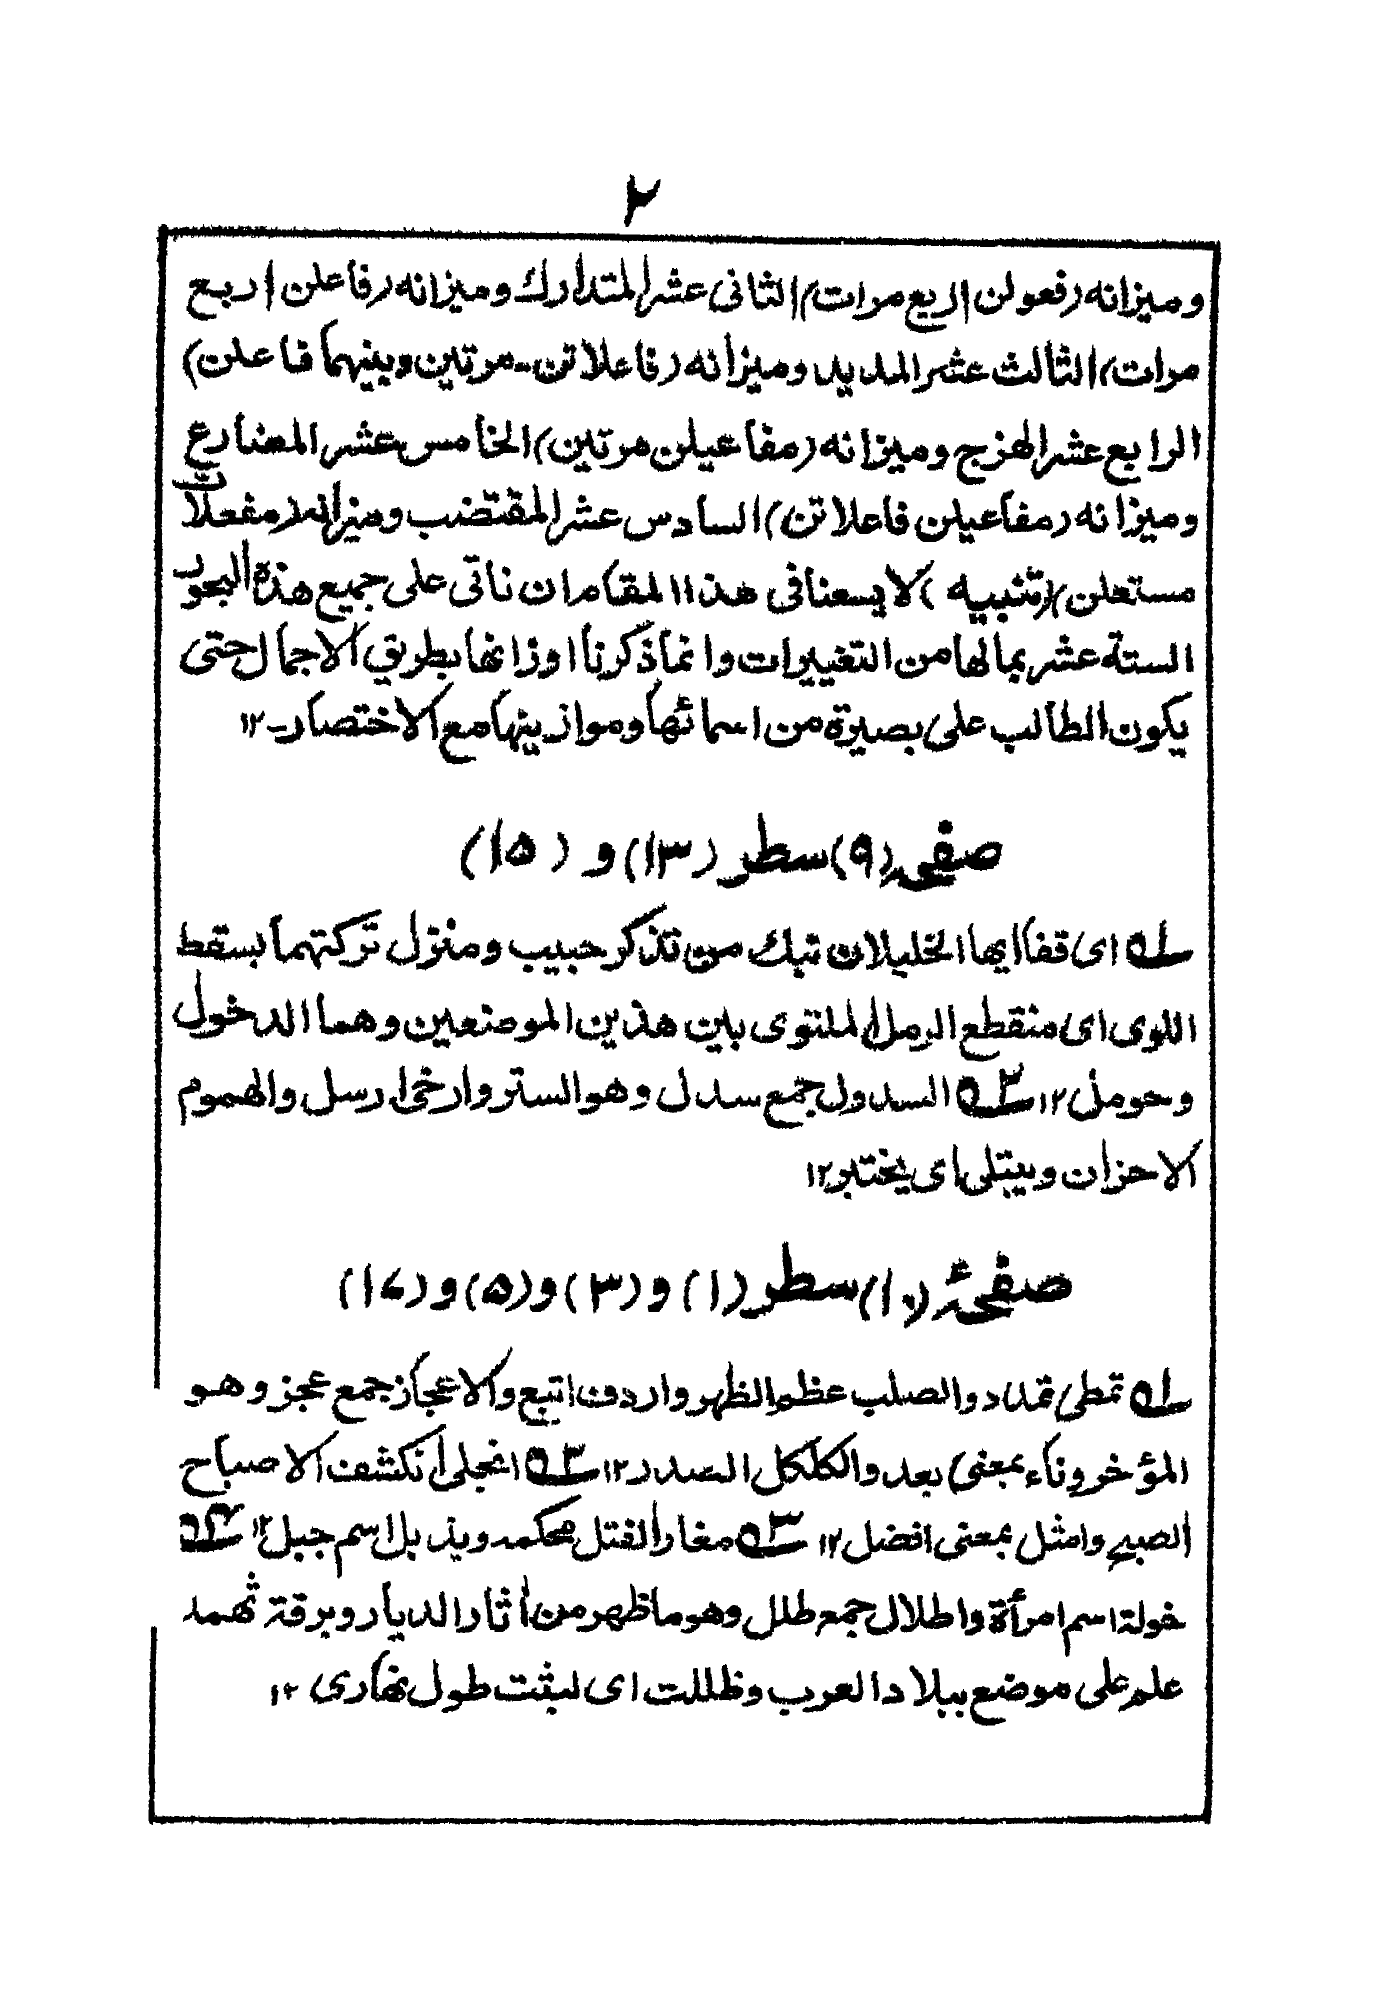 ٢
وميزانه (فعولن اربع مرات) الثانى عشر المتدارك وميزانه (فاعلن اربع
مرات) الثالث عشر المديد وميزانه (فاعلاتن - مرتين وبينهما فاعلن)
الرابع عشر الهزج وميزانه (مفاعيلن مرتين) الخامس عشر المضارع
وميزانه (مفاعيلن فاعلاتن) السادس عشر المقتضب وميزانه (مفعلات
مستعلن) (تنبيه) لا يسعنا فى هذا المقام ان ناتى على جميع هذة البحور
الستة عشر بمالها من التغييرات وانما ذكرنا اوزانها بطريق الاجمال حتى
يكون الطالب على بصيرة من اسمائها وموازينها مع الاختصار - ١٢
صفحه (٩) سطر (١٣) و (١٥)
ا؎ اى قفا ايها الخليلان نبك من تذكر حبيب ومنزل تركتهما بسقط
اللوى اى منقطع الرمل الملتوى بين هذين الموضعين وهما الدخول
وحومل ١٢ ٢؎ السدول جمع سدل وهو الستر وارخى ارسل والهموم
الاحزان ويبتلى اى يختبر ١٢
صفحهٔ (١٠) سطر (١) و (٣) و (٥) و (١٤)
ا؎ تمطى تمدد والصلب عظم الظهر واردف اتبع والاعجاز جمع عجز وهو
المؤخر وناء بمعنى بعد والكلكل الصدر ١٢ ٢؎ انجلى انكشف الاصباح
الصبح وامثل بمعنى افضل ١٢ ٣؎ مغار الفتل محكمه ويذبل اسم جبل ١٢ ٤؎
خولة اسم امرأة واطلال جمع طلل وهو ما ظهر من اثار الديار وبرقة ثهمد
علم على موضع ببلاد العرب وظللت اى لبثت طول نهارى ١٢